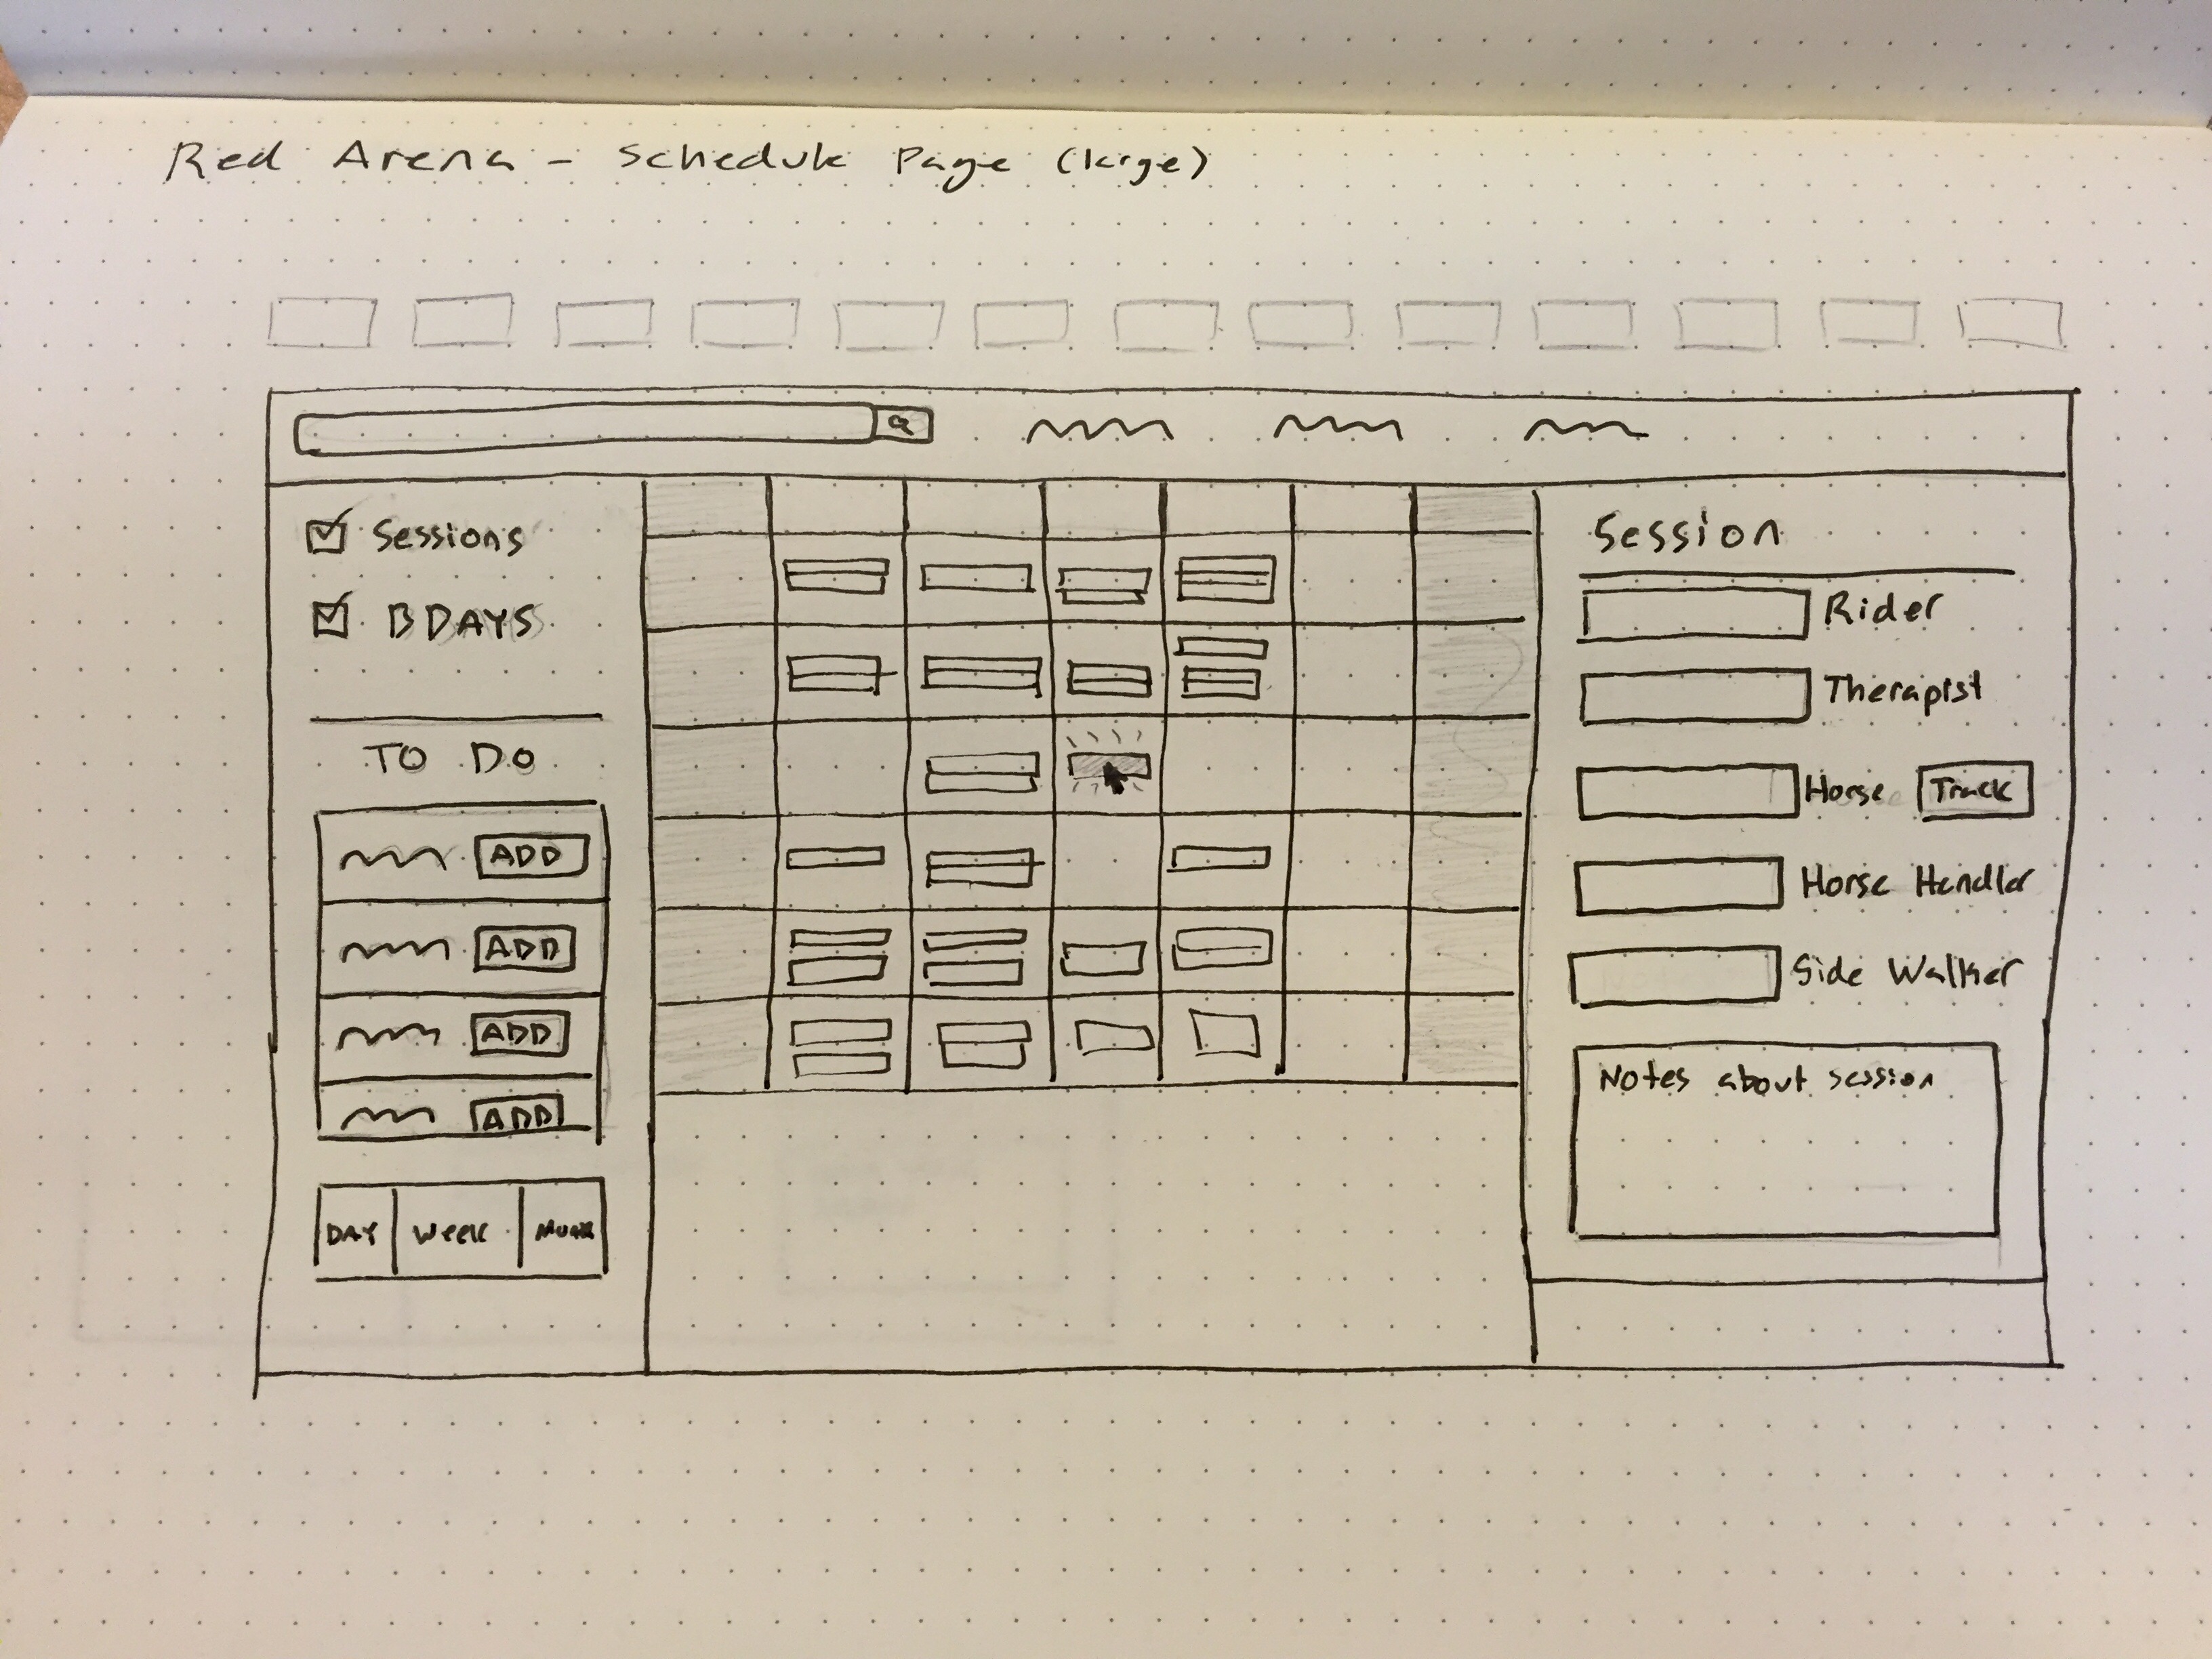 Red Arena - Schedule Page (large)
Sessions
BDAYS
TO DO
ADD
ADD
ADD
ADD
DAY Week
Session
Rider
Therapist
Horse Track
Horse Handler
Side Walker
Notes about session